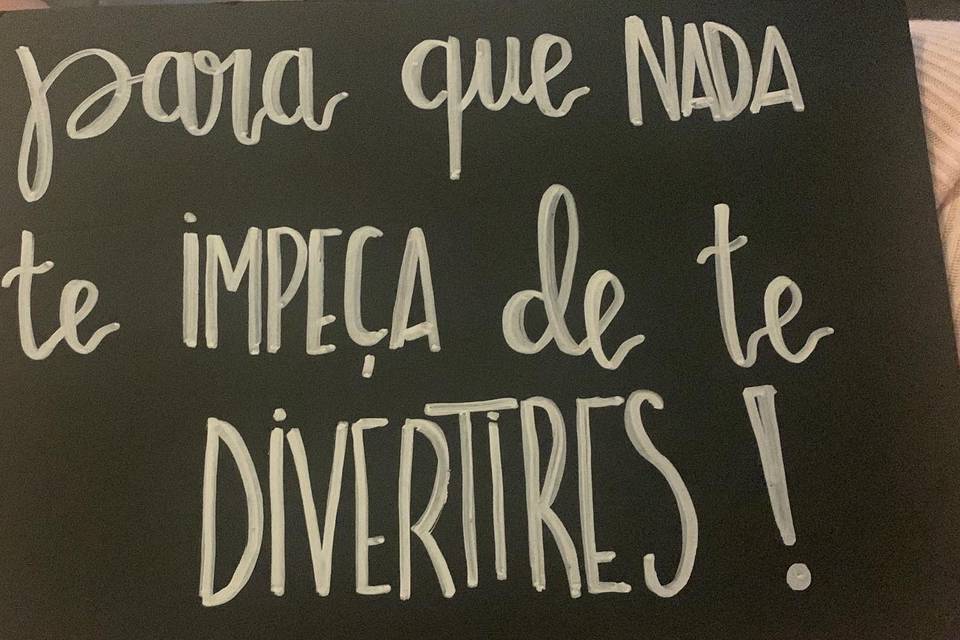 para que NADA
te iMPEÇA de te
DiVERTiRES!